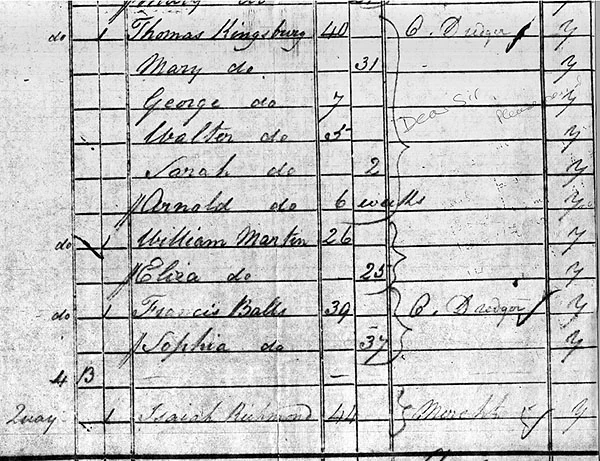 Mary do
do 1 Thomas Kingsbury 40 O. Dredger y
Mary do 31 y
George do 7 y
Dear Sir
Please
Walter do 5 y
Sarah do 2 y
Arnold do 6 weeks y
do 1 William Marten 26 y
Eliza do 25 y
do 1 Francis Balls 39 O. Dredger y
Sophia do 37 y
4 B –
Quay 1 Isaiah Richmond 44 y